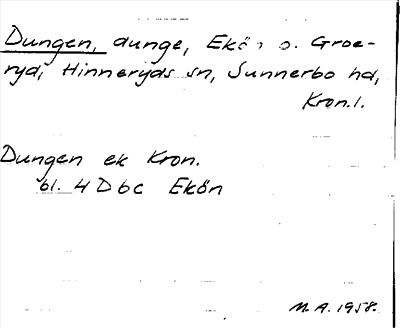 Dungen, dunge, Ekön o. Groe-
ryd, Hinneryds sn, Sunnerbo hd,
Kron.l.
Dungen ek Kron.
bl. 4 D6c Ekön
M.A. 1958.